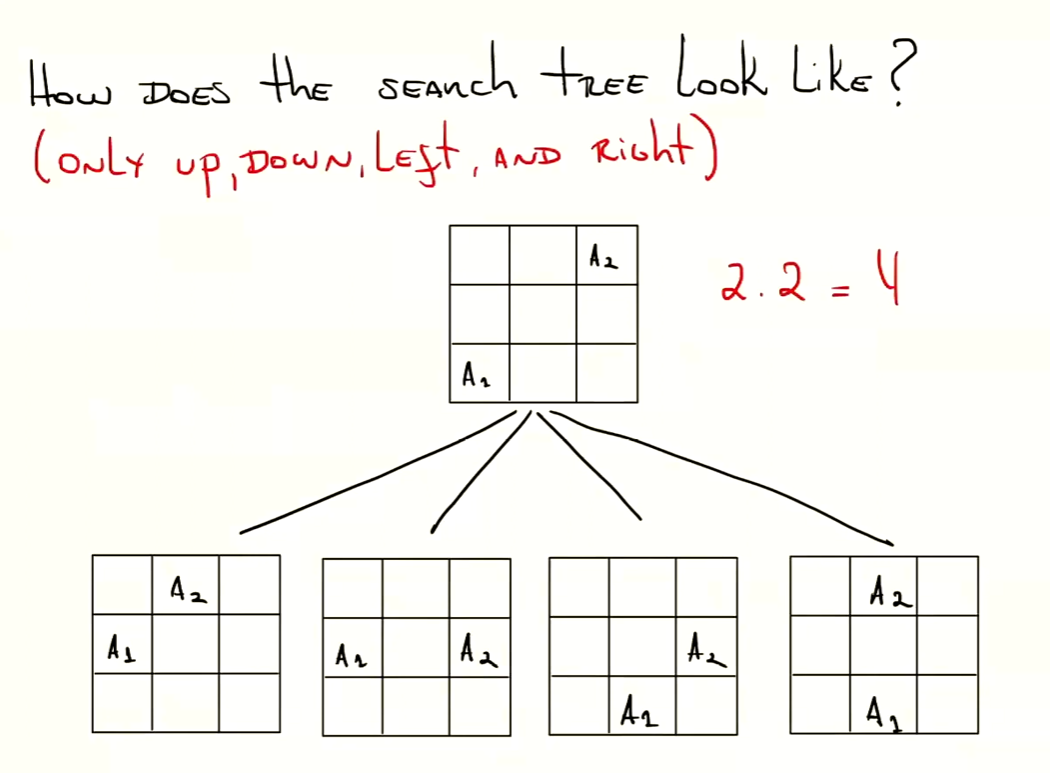 How DOES the SEARCH TREE Look Like?
(ONLY UP, DOWN, Left, AND Right)
A2
2.2 = 4
A1
A2 A2
A1 A1 A2 A2
A1 A1